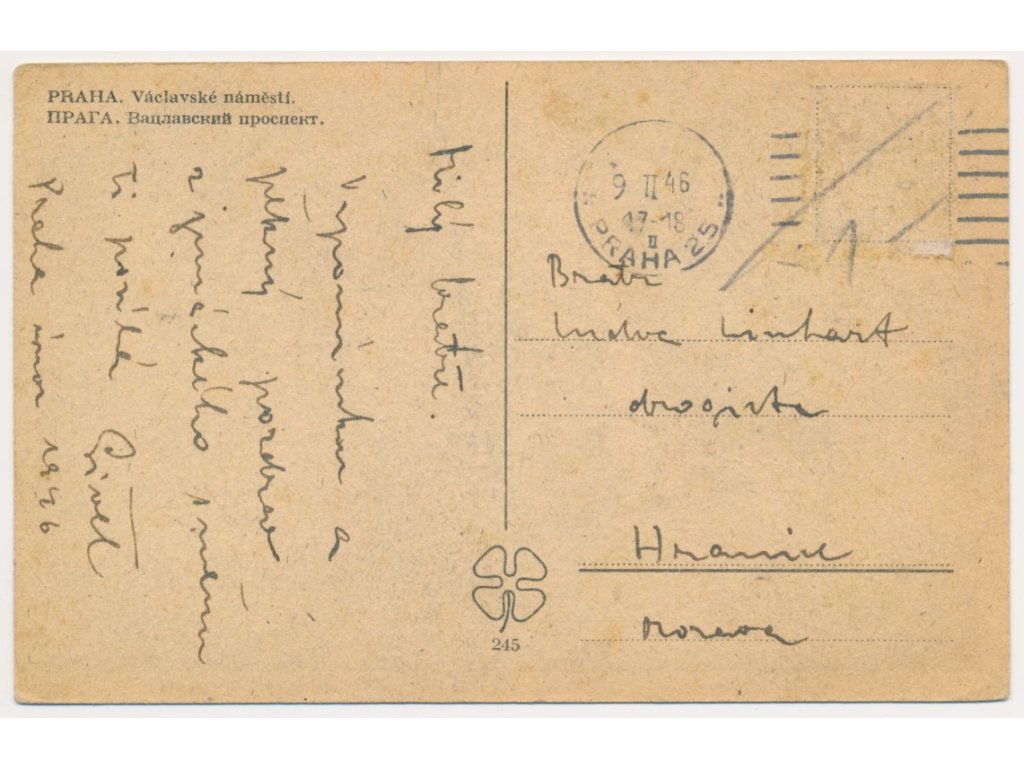 PRAHA. Václavské náměstí.
ПРАГА. Вацлавский проспект.
Milý bratře.
Vzpomínku a
pěkný pozdrav
z
Ti posílá
Praha únor 1946
9 II 46
17-18
II
PRAHA 25
1
Bratr
Linhart
drogista
Hranice
Morava
245